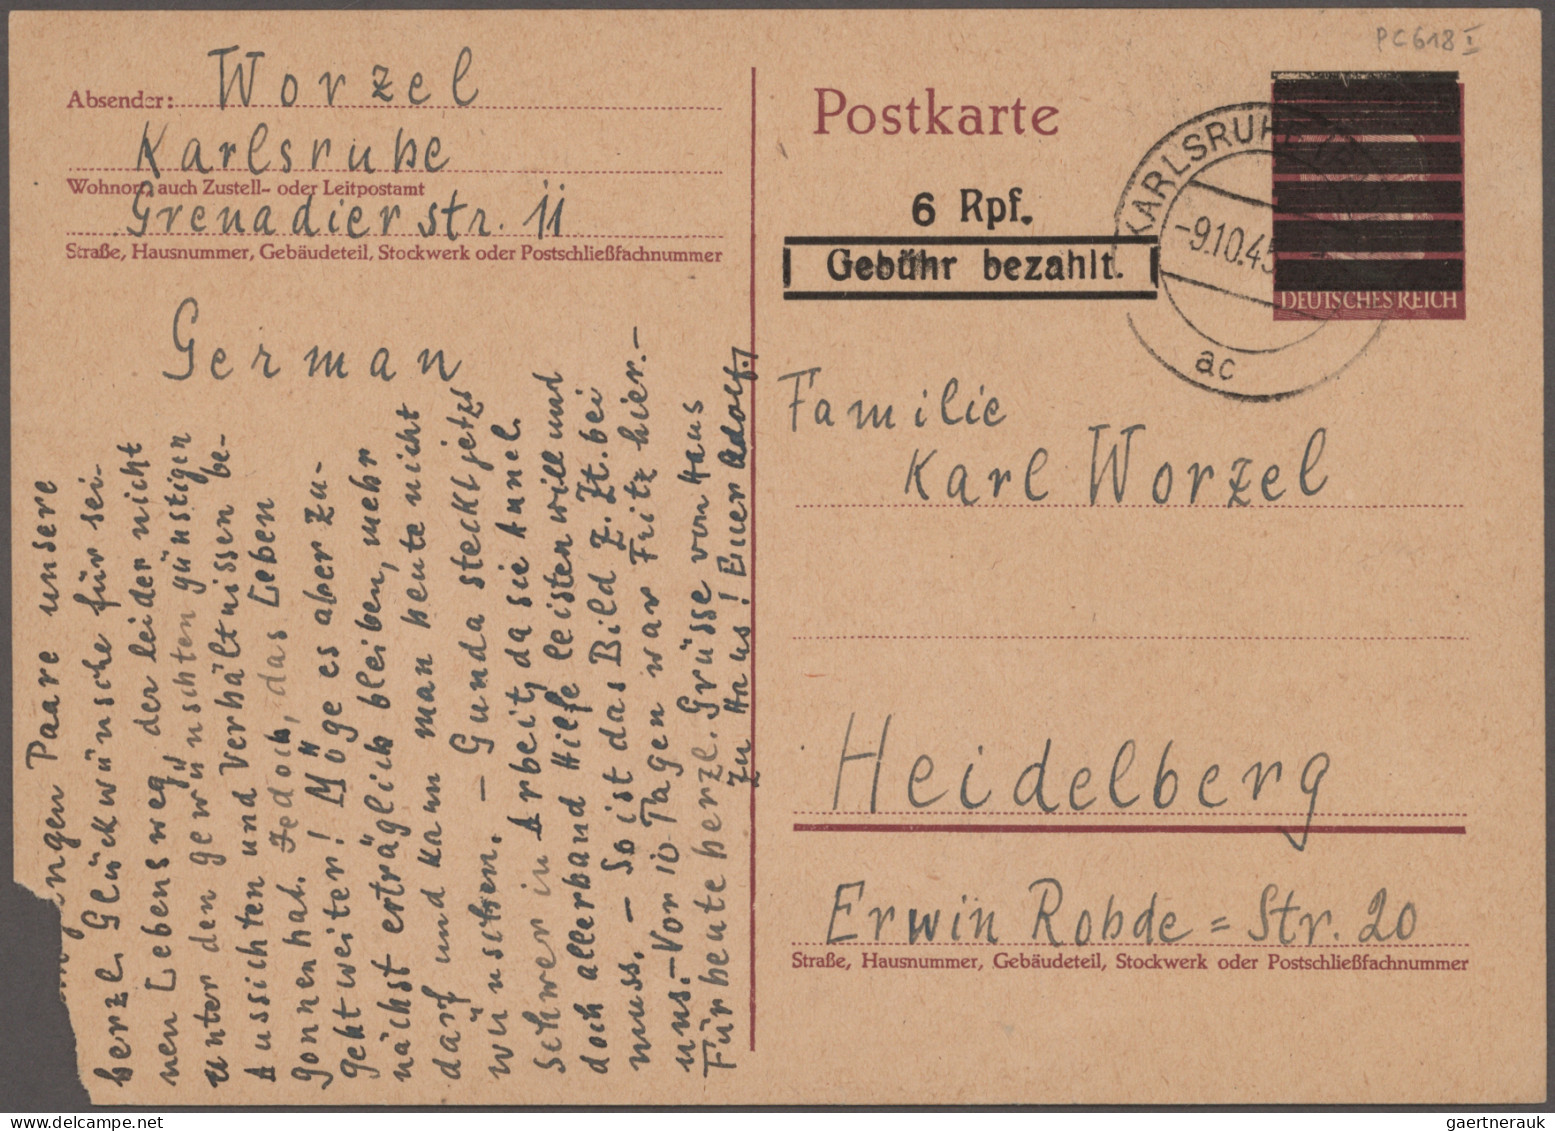 PC 618 I
Absender: Worzel
Karlsruhe
Wohnort, auch Zustell- oder Leitpostamt
Grenadierstr. 11
Straße, Hausnummer, Gebäudeteil, Stockwerk oder Postschließfachnummer
German
Postkarte
6 Rpf.
Gebühr bezahlt.
KARLSRUHE
-9.10.45
ac
DEUTSCHES REICH
Familie
Karl Worzel
Heidelberg
Erwin Rohde=Str. 20
Straße, Hausnummer, Gebäudeteil, Stockwerk oder Postschließfachnummer
Paare unsere
herzl. Glückwünsche für sei-
nen Lebensweg, der leider nicht
unter den gewünschten günstigen
Aussichten und Verhältnissen be-
gonnen hat. Jedoch, das Leben
geht weiter! Möge es aber zu-
nächst erträglich bleiben, mehr
darf und kann man heute nicht
wünschen. – Gunda steckt jetzt
schwer in Arbeit, da sie Annel.
doch allerhand Hilfe leisten will und
muss. – So ist das Bild z. Zt. bei
uns. – Vor 10 Tagen war Fritz hier. –
Für heute herzl. Grüsse von Haus
zu Haus! Euer Adolf.
gaertnerauk